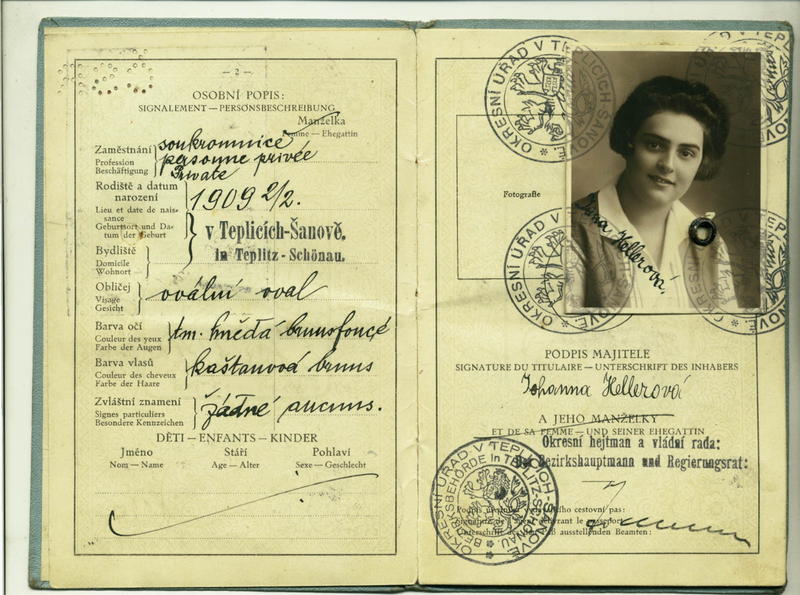 — 2 —
OSOBNÍ POPIS:
SIGNALEMENT — PERSONSBESCHREIBUNG
Manželka
Femme — Ehegattin
Zaměstnání
Profession
Beschäftigung
soukromnice
personne privée
Private
Rodiště a datum
narození
Lieu et date de nais-
sance
Geburtsort und Da-
tum der Geburt
1909 2/2.
v Teplicích-Šanově.
in Teplitz-Schönau.
Bydliště
Domicile
Wohnort
Obličej
Visage
Gesicht
ovální oval
Barva očí
Couleur des yeux
Farbe der Augen
tm. hnědá bruns foncé
Barva vlasů
Couleur des cheveux
Farbe der Haare
kaštanová bruns
Zvláštní znamení
Signes particuliers
Besondere Kennzeichen
žádné aucuns.
DĚTI — ENFANTS — KINDER
Jméno Stáří Pohlaví
Nom — Name Age — Alter Sexe — Geschlecht
OKRESNÍ ÚŘAD V TEPLICÍCH ŠANOVĚ
Fotografie
Hellerová
OKRESNÍ ÚŘAD V TEPLICÍCH ŠANOVĚ
PODPIS MAJITELE
SIGNATURE DU TITULAIRE — UNTERSCHRIFT DES INHABERS
Johanna Hellerová
A JEHO MANŽELKY
ET DE SA FEMME — UND SEINER EHEGATTIN
Okresní hejtman a vládní rada:
Der Bezirkshauptmann und Regierungsrat:
OKRESNÍ ÚŘAD V TEPLICÍCH ŠANOVĚ
BEZIRKSBEHÖRDE in TEPLITZ-SCHÖNAU.
Podpis cestovní pas:
Unterschrift ausstellenden Beamten: